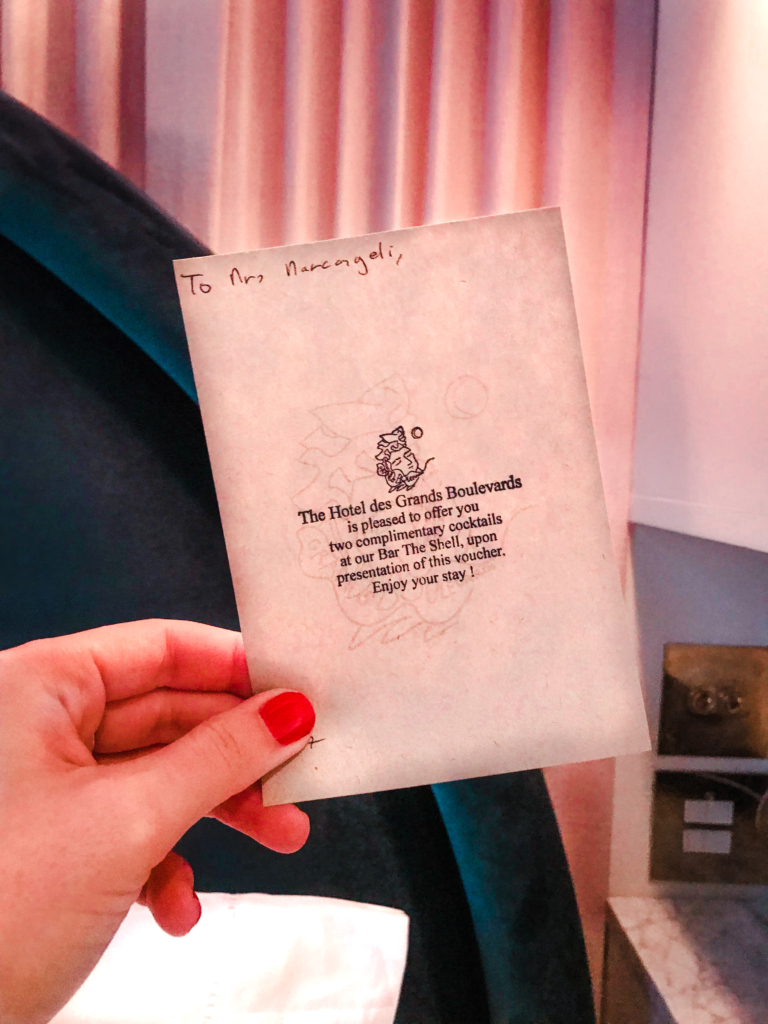 To Mrs Marcangeli,
The Hotel des Grands Boulevards
is pleased to offer you
two complimentary cocktails
at our Bar The Shell, upon
presentation of this voucher.
Enjoy your stay !